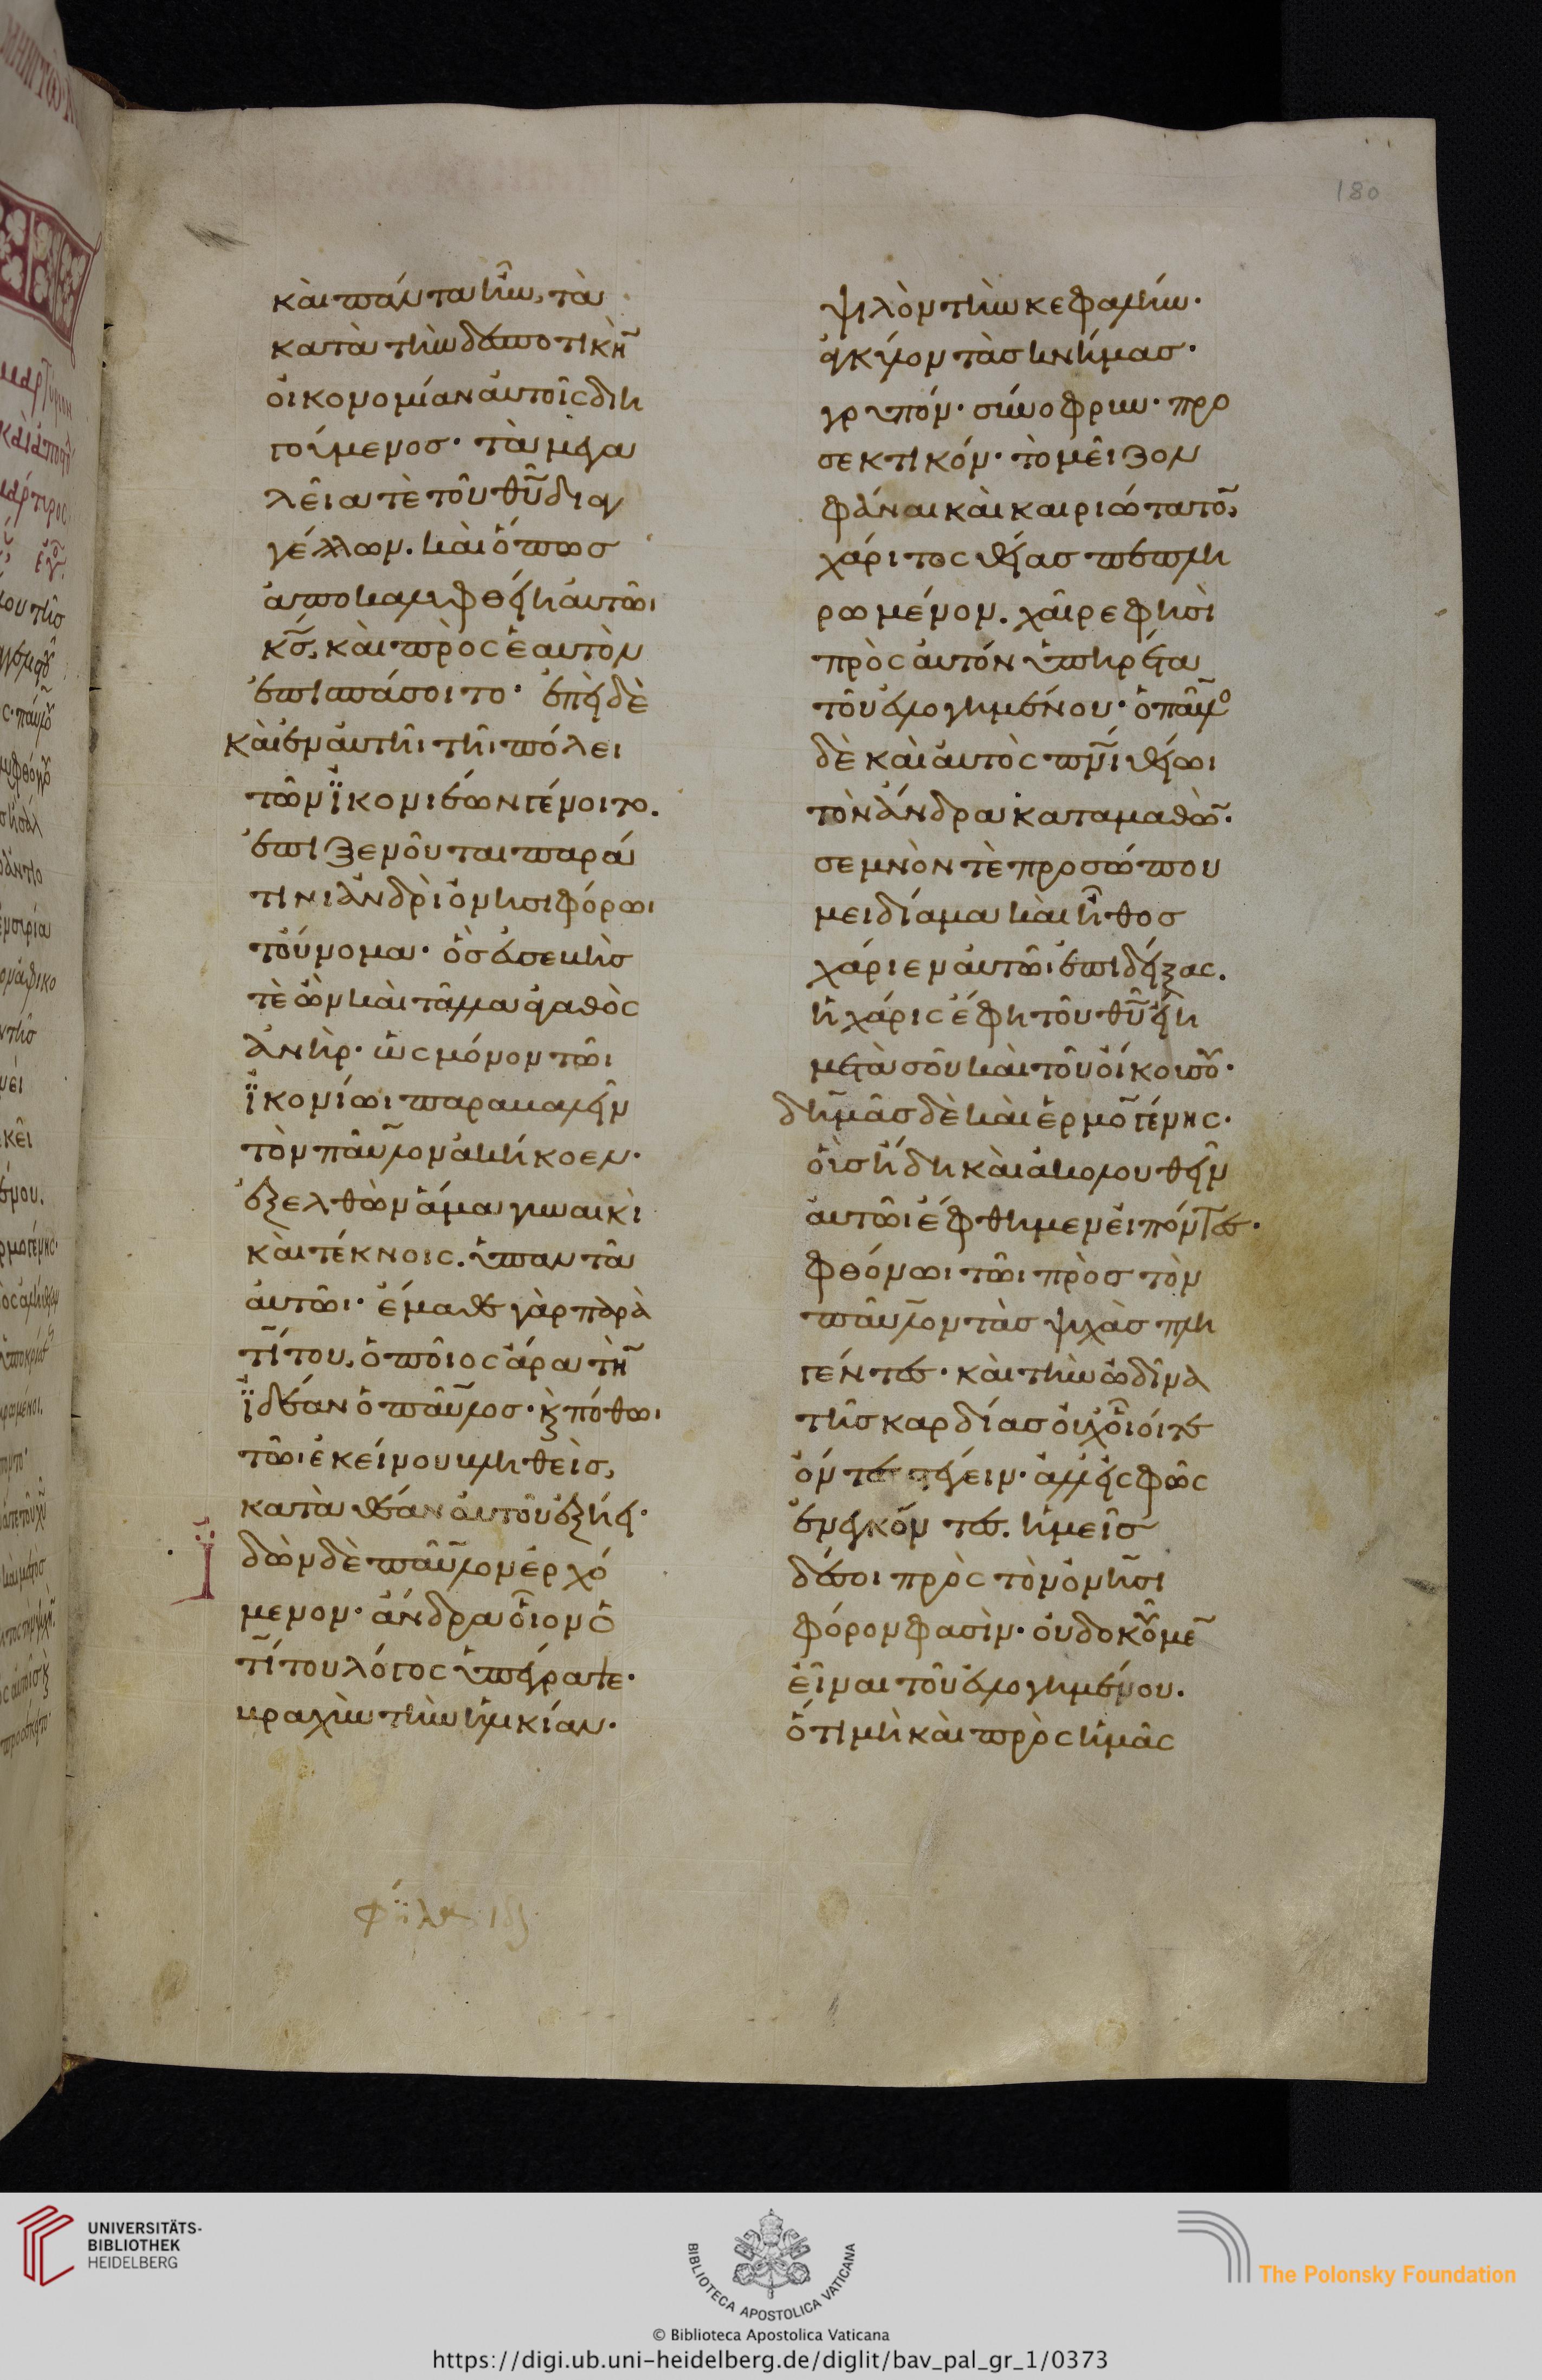 180
καὶ πάντα ἦν, τὰ
κατὰ τὴν δεσποτικὴ̅
οἰκονομίαν αὐτοῖς διη
γούμενος· τὰ μεγα
λεῖά τε τοῦ θῦ διαγ
γέλλων. καὶ ὅπως
ἀποκαλυφθείη αὐτῶι
κ̅ς, καὶ πρὸς ἑαυτὸν
ἐπισπάσοιτο· ἐπεὶ δὲ
καὶ ἐν αὐτῆι τῆι πόλει
τῶν ϊκονιέων γένοιτο.
ἐπιξενοῦται παρά
τινι ἀνδρὶ ὀνησιφόρωι
τοὔνομα· ὃς εὐσεβὴς
τὲ ὢν καὶ τἄλλα ἀγαθὸς
ἀνήρ· ὡς μόνον τῶι
ϊκονίωι παραβαλεῖν
τὸν παῦλον ἀκήκοεν·
ἐξελθὼν ἅμα γυναικὶ
καὶ τέκνοις. ὑπαντᾶ
αὐτῶι· ἔμαθε γὰρ παρὰ
τίτου, ὁποῖος ἄρα τὴ̅
ϊδέαν ὁ παῦλος· κ̀ πόθωι
τῶι ἐκείνου βληθεὶς,
κατὰ θέαν αὐτοῦ ἐξήει·
Ϊδὼν δὲ παῦλον ἐρχό
μενον· ἄνδρα οἷον ὁ
τίτου λόγος ὑπέγραφε·
βραχὺν τὴν ἡλικίαν·
ψιλὸν τὴν κεφαλήν·
ἀγκύλον τὰς κνήμας·
γρυπόν· σύνοφρυν· προ
σεκτικόν· τὸ μεῖζον
φάναι καὶ καιριώτατο̅,
χάριτος θείας πεπλη
ρωμένον. χαῖρε φησὶ
πρὸς αὐτόν ὑπηρέτα
τοῦ εὐλογημένου· ὁ παῦλο
δὲ καὶ αὐτὸς πν̅ι θείωι
τὸν ἄνδρα καταμαθὼ̅·
σεμνὸν τὲ προσώπου
μειδίαμα καὶ ἦθος
χάριεν αὐτῶι ἐπιδείξας.
ἡ χάρις ἔφη τοῦ θῦ εἴη
μετὰ σοῦ καὶ τοῦ οἴκου σου·
δημᾶς δὲ καὶ ἑρμογένης·
οἷς ἤδη καὶ ἀκολουθεῖν
αὐτῶι ἔφθημεν εἰπόντες·
φθόνωι τῶι πρὸς τὸν
παῦλον τὰς ψυχὰς πλη
γέντες· καὶ τὴν ὠδῖνα
τῆς καρδίας οὐχ οἷοί τε
ὄντες στέγειν· ἀλλ' εἰς φῶς
ἐνεγκόντες. ἡμεῖς
δέ σοι πρὸς τὸν ὀνησι
φόρον φασὶν· οὐ δοκοῦμε̅
εἶναι τοῦ εὐλογημένου.
ὅτι μὴ καὶ πρὸς ἡμᾶς
UNIVERSITÄTS-
BIBLIOTHEK
HEIDELBERG
BIBLIOTECA APOSTOLICA VATICANA
The Polonsky Foundation
© Biblioteca Apostolica Vaticana
https://digi.ub.uni-heidelberg.de/diglit/bav_pal_gr_1/0373